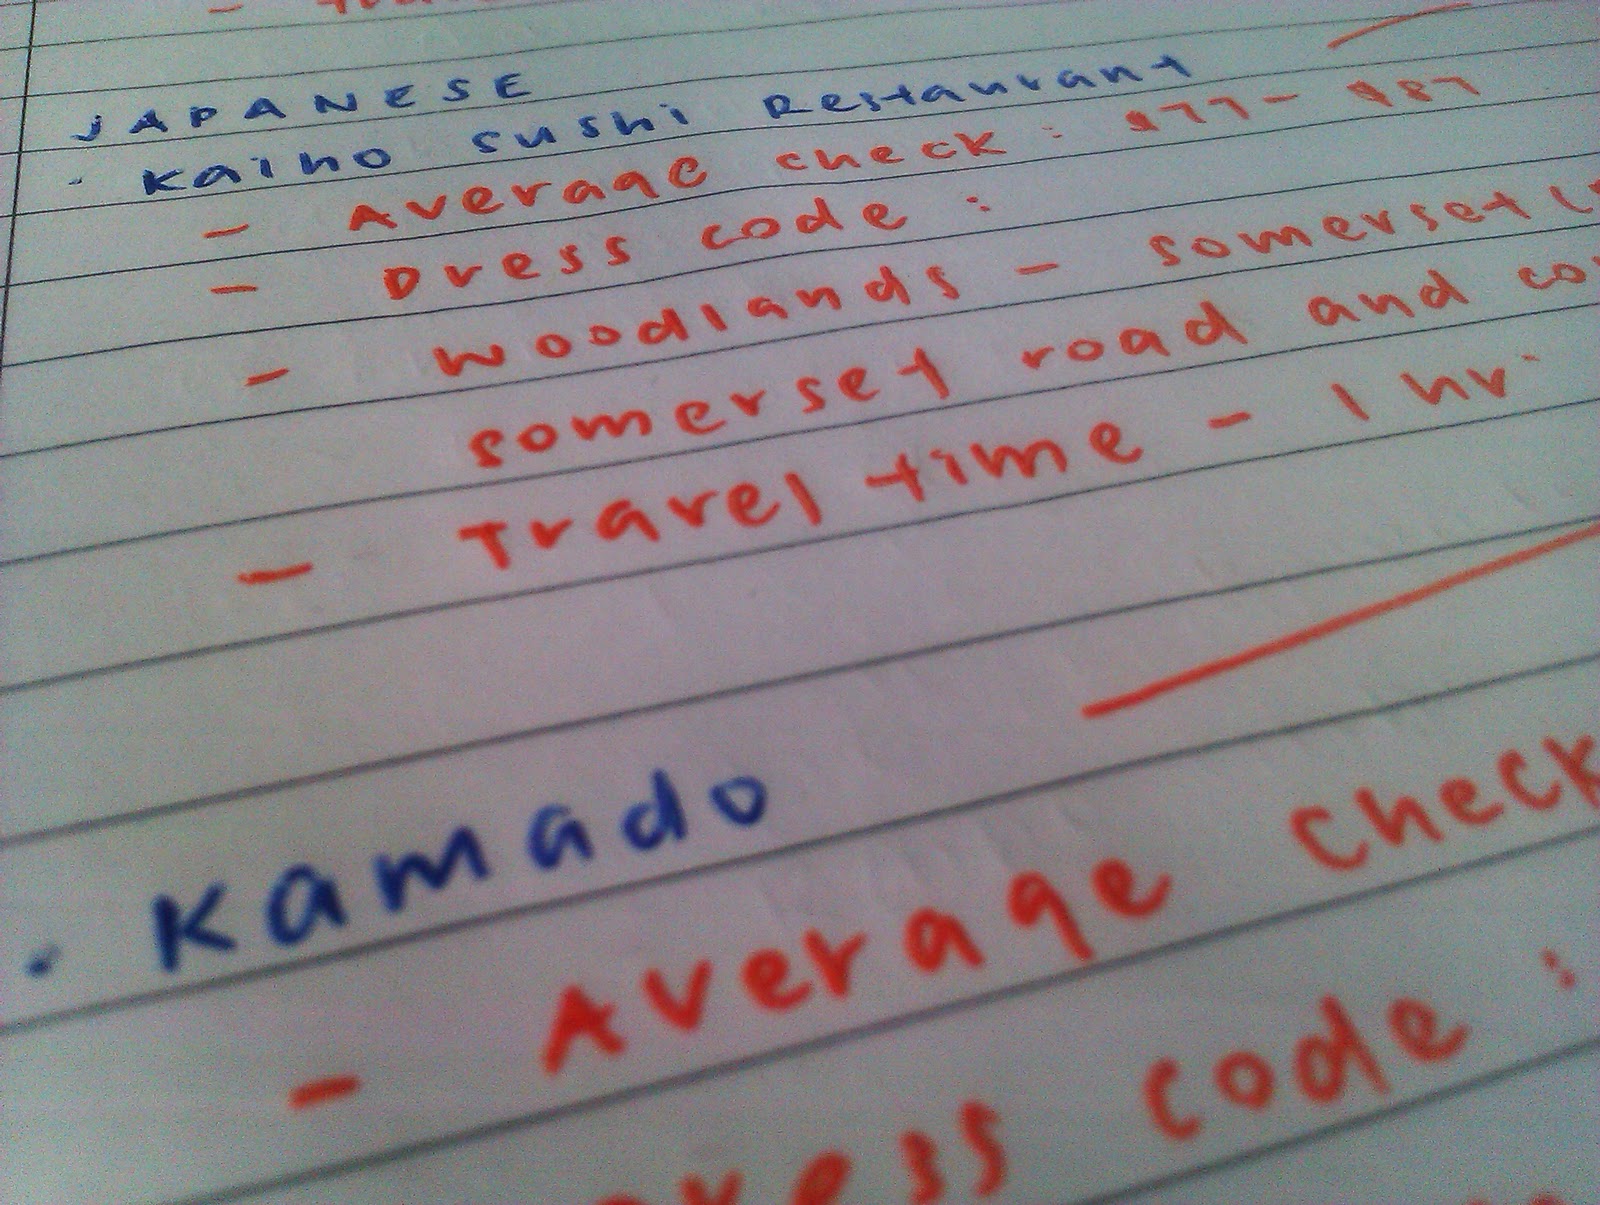 JAPANESE
· Kaiho sushi Restaurant
- Average check : $77 - $87
- Dress code :
- Woodlands - somerset
somerset road and
- Travel time - 1 hr
· Kamado
- Average check
Dress code :